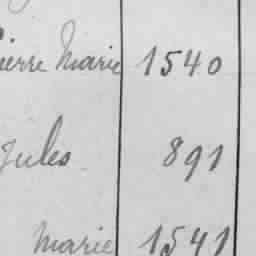 Pierre Marie 1540
Jules 891
Marie 1541